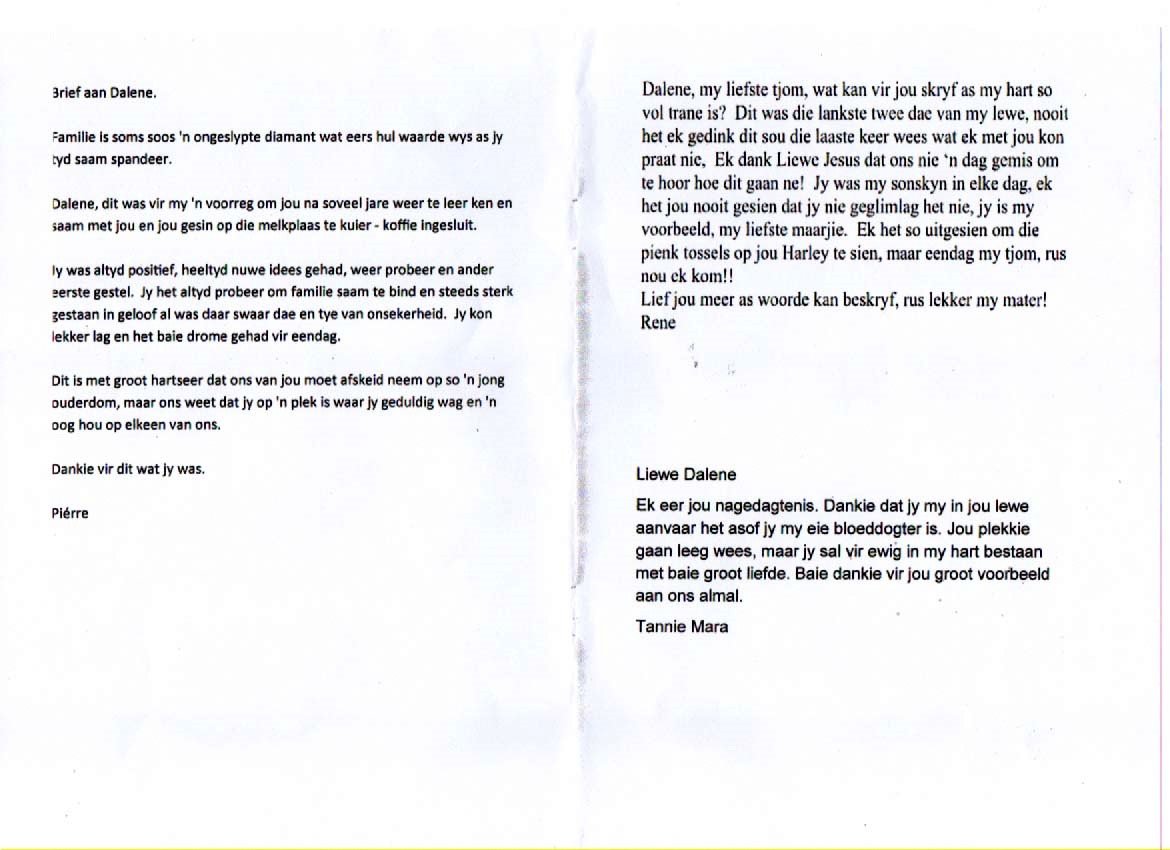 Brief aan Dalene.
Familie is soms soos 'n ongeslypte diamant wat eers hul waarde wys as jy
tyd saam spandeer.
Dalene, dit was vir my 'n voorreg om jou na soveel jare weer te leer ken en
saam met jou en jou gesin op die melkplaas te kuier - koffie ingesluit.
Jy was altyd positief, heeltyd nuwe idees gehad, weer probeer en ander
eerste gestel. Jy het altyd probeer om familie saam te bind en steeds sterk
gestaan in geloof al was daar swaar dae en tye van onsekerheid. Jy kon
lekker lag en het baie drome gehad vir eendag.
Dit is met groot hartseer dat ons van jou moet afskeid neem op so 'n jong
ouderdom, maar ons weet dat jy op 'n plek is waar jy geduldig wag en 'n
oog hou op elkeen van ons.
Dankie vir dit wat jy was.
Piérre
Dalene, my liefste tjom, wat kan vir jou skryf as my hart so
vol trane is? Dit was die lankste twee dae van my lewe, nooit
het ek gedink dit sou die laaste keer wees wat ek met jou kon
praat nie, Ek dank Liewe Jesus dat ons nie 'n dag gemis om
te hoor hoe dit gaan ne! Jy was my sonskyn in elke dag, ek
het jou nooit gesien dat jy nie geglimlag het nie, jy is my
voorbeeld, my liefste maarjie. Ek het so uitgesien om die
pienk tossels op jou Harley te sien, maar eendag my tjom, rus
nou ek kom!!
Lief jou meer as woorde kan beskryf, rus lekker my mater!
Rene
Liewe Dalene
Ek eer jou nagedagtenis. Dankie dat jy my in jou lewe
aanvaar het asof jy my eie bloeddogter is. Jou plekkie
gaan leeg wees, maar jy sal vir ewig in my hart bestaan
met baie groot liefde. Baie dankie vir jou groot voorbeeld
aan ons almal.
Tannie Mara